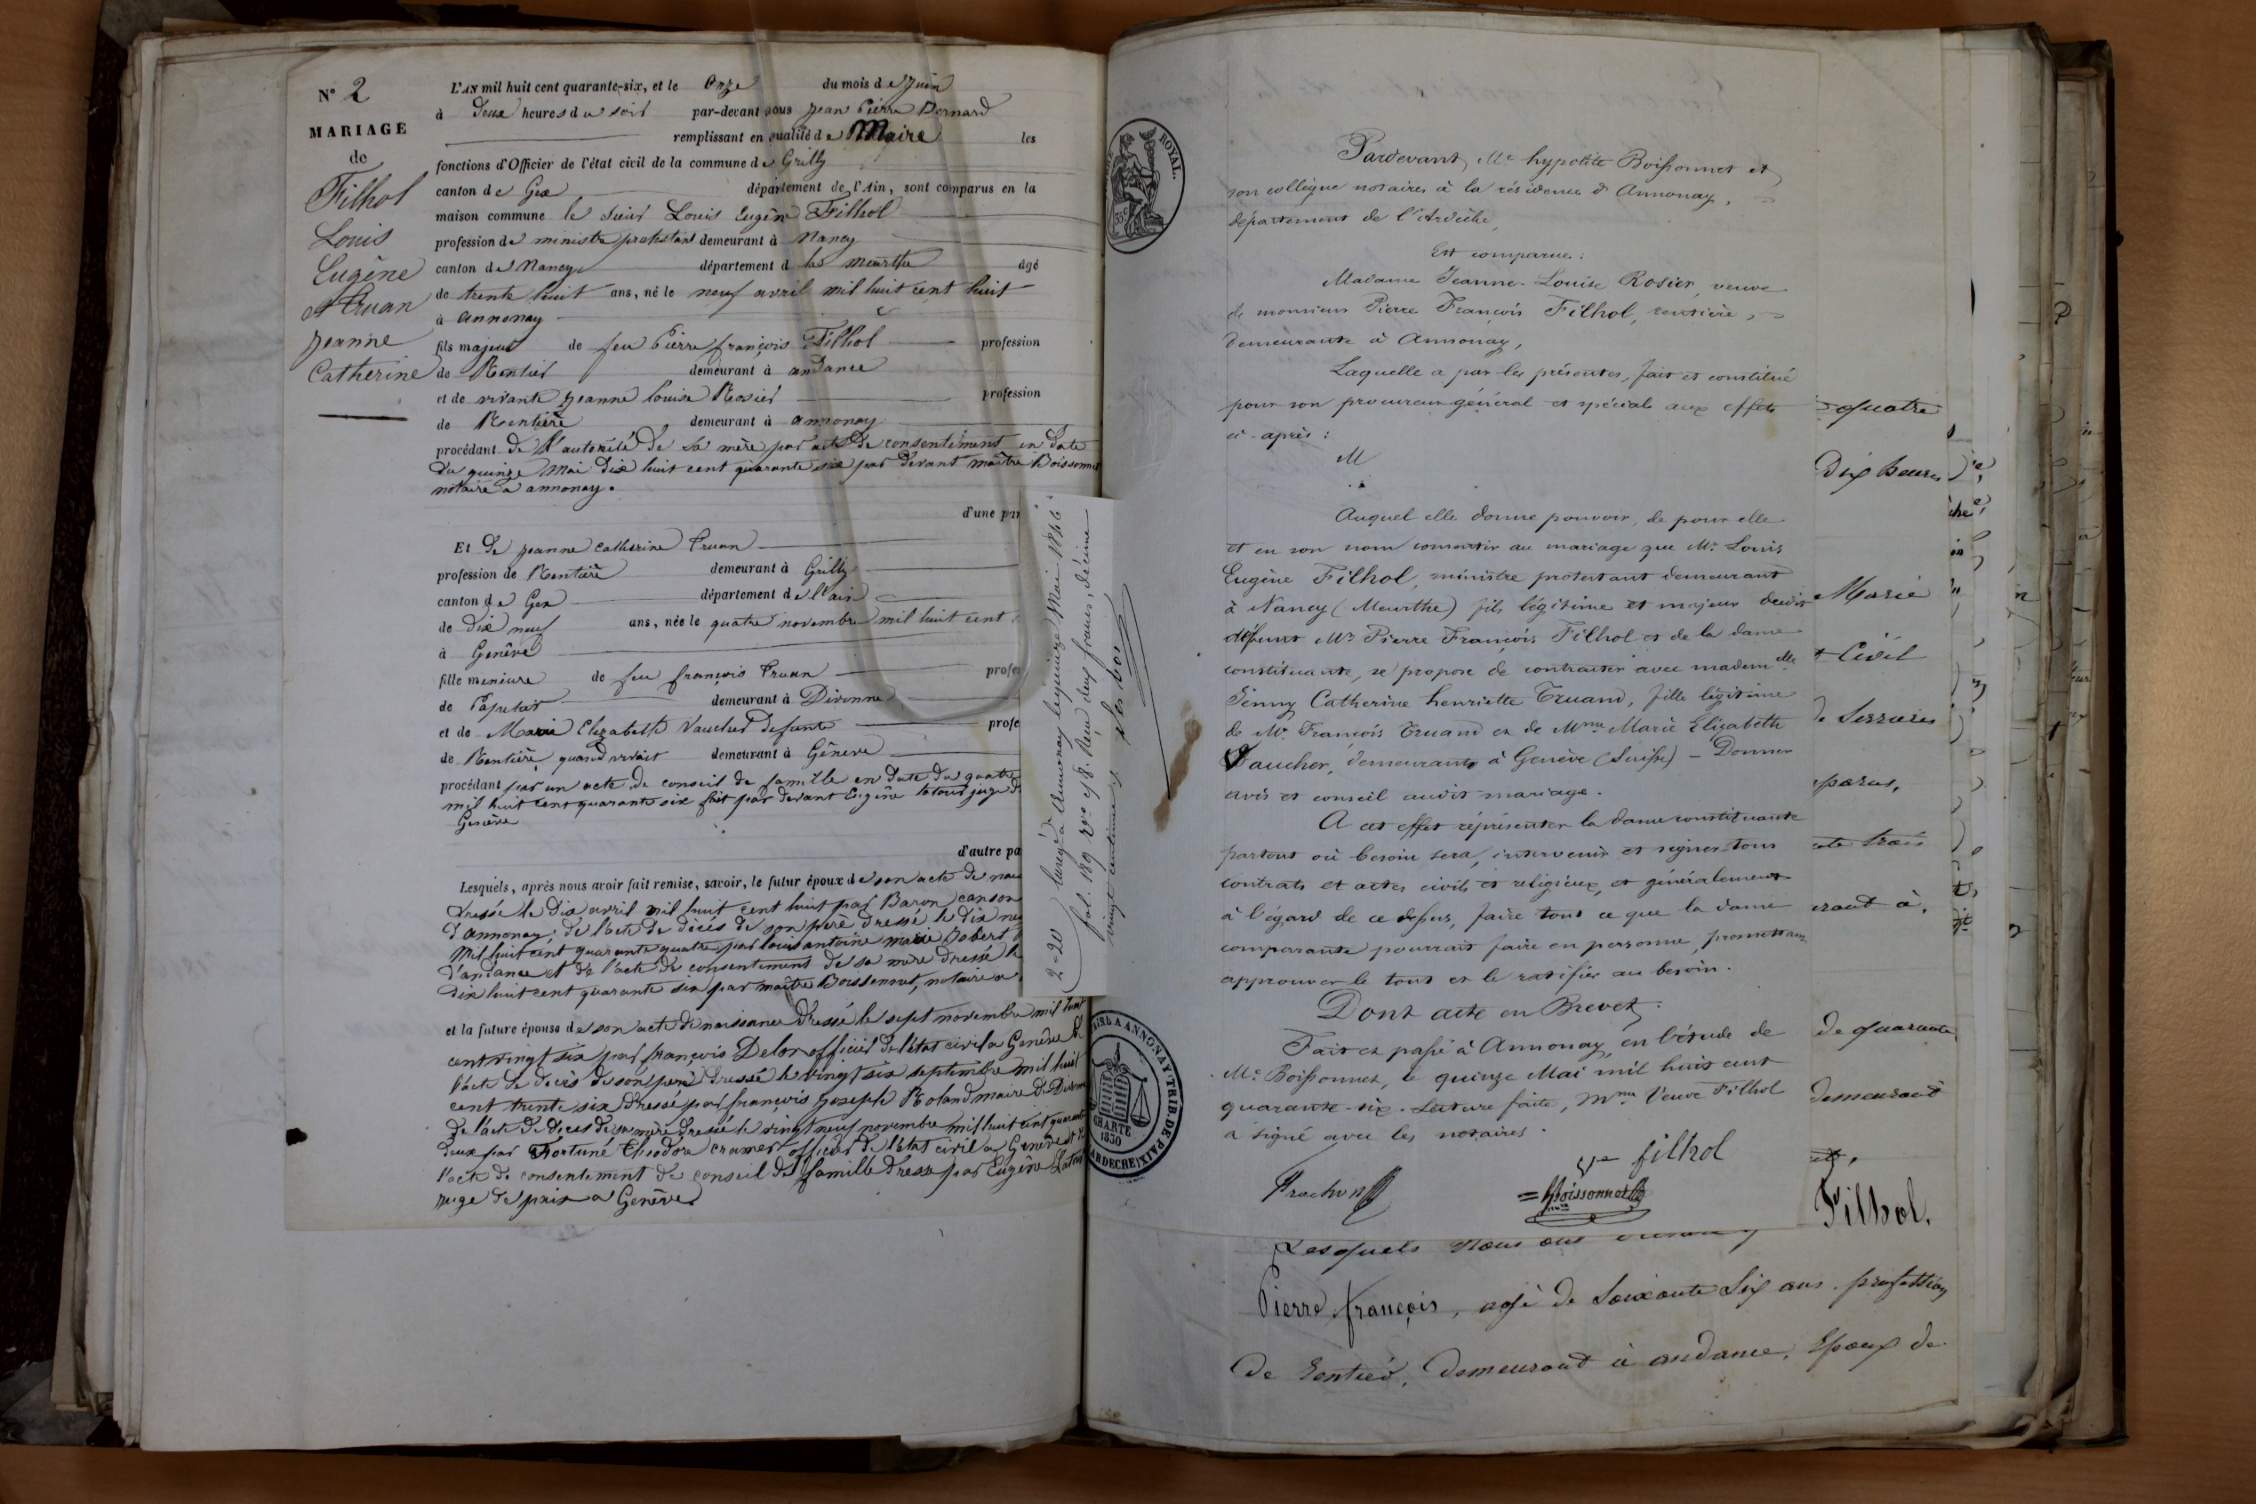 N° 2
MARIAGE
de
Filhol
Louis
Eugène
et Truan
Jeanne
Catherine
L'AN mil huit cent quarante-six, et le Onze du mois de Juin
à Deux heures du soir par-devant nous Jean Pierre Bernard
remplissant en qualité de Maire les
fonctions d'Officier de l'état civil de la commune de Grilly
canton de Gex département de l'Ain, sont comparus en la
maison commune le sieur Louis Eugène Filhol
profession de ministre protestant demeurant à Nancy
canton de Nancy département de la Meurthe âgé
de trente huit ans, né le neuf avril mil huit cent huit
à annonay
fils majeur de feu Pierre françois Filhol profession
de Rentier demeurant à andance
et de vivante Jeanne Louise Rosier profession
de Rentière demeurant à annonay
procédant de l'autorité de sa mère par acte de consentement en date
du quinze Mai dix huit cent quarante six par devant maître Boissonnet
notaire à annonay.
d'une par
Et de Jeanne Catherine Truan
profession de Rentière demeurant à Grilly
canton de Gex département de l'ain
de dix neuf ans, née le quatre novembre mil huit cent
à Genève
fille mineure de feu françois Truan profes
de Papetier demeurant à Divonne
et de Marie Elizabeth Vaucher defunte profe
de Rentière quand vivait demeurant à Genève
procédant par un acte de conseil de famille en date du quatre
mil huit cent quarante six fait par devant Eugène latour juge de
Genève
d'autre pa
Lesquels, après nous avoir fait remise, savoir, le futur époux de son acte de nais
dressé le dix avril mil huit cent huit par Baron canson
d'annonay; de l'acte de décès de son père dressé le dix ne
Mil huit cent quarante quatre par louis antoine marie Jobert
d'andance et de l'acte de consentement de sa mère dressé le
dix huit cent quarante six par maître Boissonnet, notaire a
et la future épouse de son acte de naissance dressé le sept novembre mil huit
cent vingt six par françois Delor officier de l'état civil à Genève de
l'acte de décès de son père dressé le vingt six septembre mil huit
cent trente six dressé par françois Joseph Roland maire de Divonne
de l'acte de décès de sa mère dressé le vingt neuf novembre mil huit cent quarante
deux par Fortuné Théodore cramer officier de l'état civil a Genève et de
l'acte de consentement de conseil de famille dressé par Eugène Latour
juge de paix a Genève
2=20
Enregé à Annonay le quinze Mai 1846
fol. 189 Vo c 8. Reçu deux francs, décime
vingt centimes
ROYAL.
35 c
Pardevant Me hypolite Boissonnet et
son collègue notaires à la résidence d'Annonay,
département de l'Ardèche,
Est comparue:
Madame Jeanne-Louise Rosier, veuve
de monsieur Pierre François Filhol, rentière,
demeurante à Annonay,
Laquelle a par les présentes, fait et constitué
pour son procureur général et spécial aux effets
ci-après:
M
Auquel elle donne pouvoir, de pour elle
et en son nom consentir au mariage que Mr Louis
Eugène Filhol, ministre protestant demeurant
à Nancy (Meurthe) fils légitime et majeur dudit
défunt Mr Pierre François Filhol et de la dame
constituante, se propose de contracter avec mademelle
Jenny Catherine henriette Truand, fille légitime
de Mr François Truand et de Mme Marie Elisabeth
Vaucher, demeurants à Genève (Suisse) - Donner
avis et conseil audit mariage.
A cet effet représenter la dame constituante
partout où besoin sera, intervenir et signer tous
contrats et actes civils et religieux, et généralement
à l'égard de ce dessus, faire tout ce que la dame
comparante pourrait faire en personne, promettant
approuver le tout et le ratifier au besoin.
Dont acte en Brevet.
Fait et passé à Annonay, en l'étude de
Me Boissonnet, le quinze Mai mil huit cent
quarante-six. Lecture faite, Mme Veuve Filhol
a signé avec les notaires.
Ve filhol
Boissonnet
A ANNONAY TRIB. DE PAIX
CHARTE
1830
ARDECHE
quatre
Dix heures
Marie
Civil
de Serrieres
mparus,
trois
eurant à,
de quarante
demeurant
Filhol.
Lesquels Nous ont
Pierre françois, agé de Soixante Six ans. profession
de Rentier, demeurant à andance, Epoux de